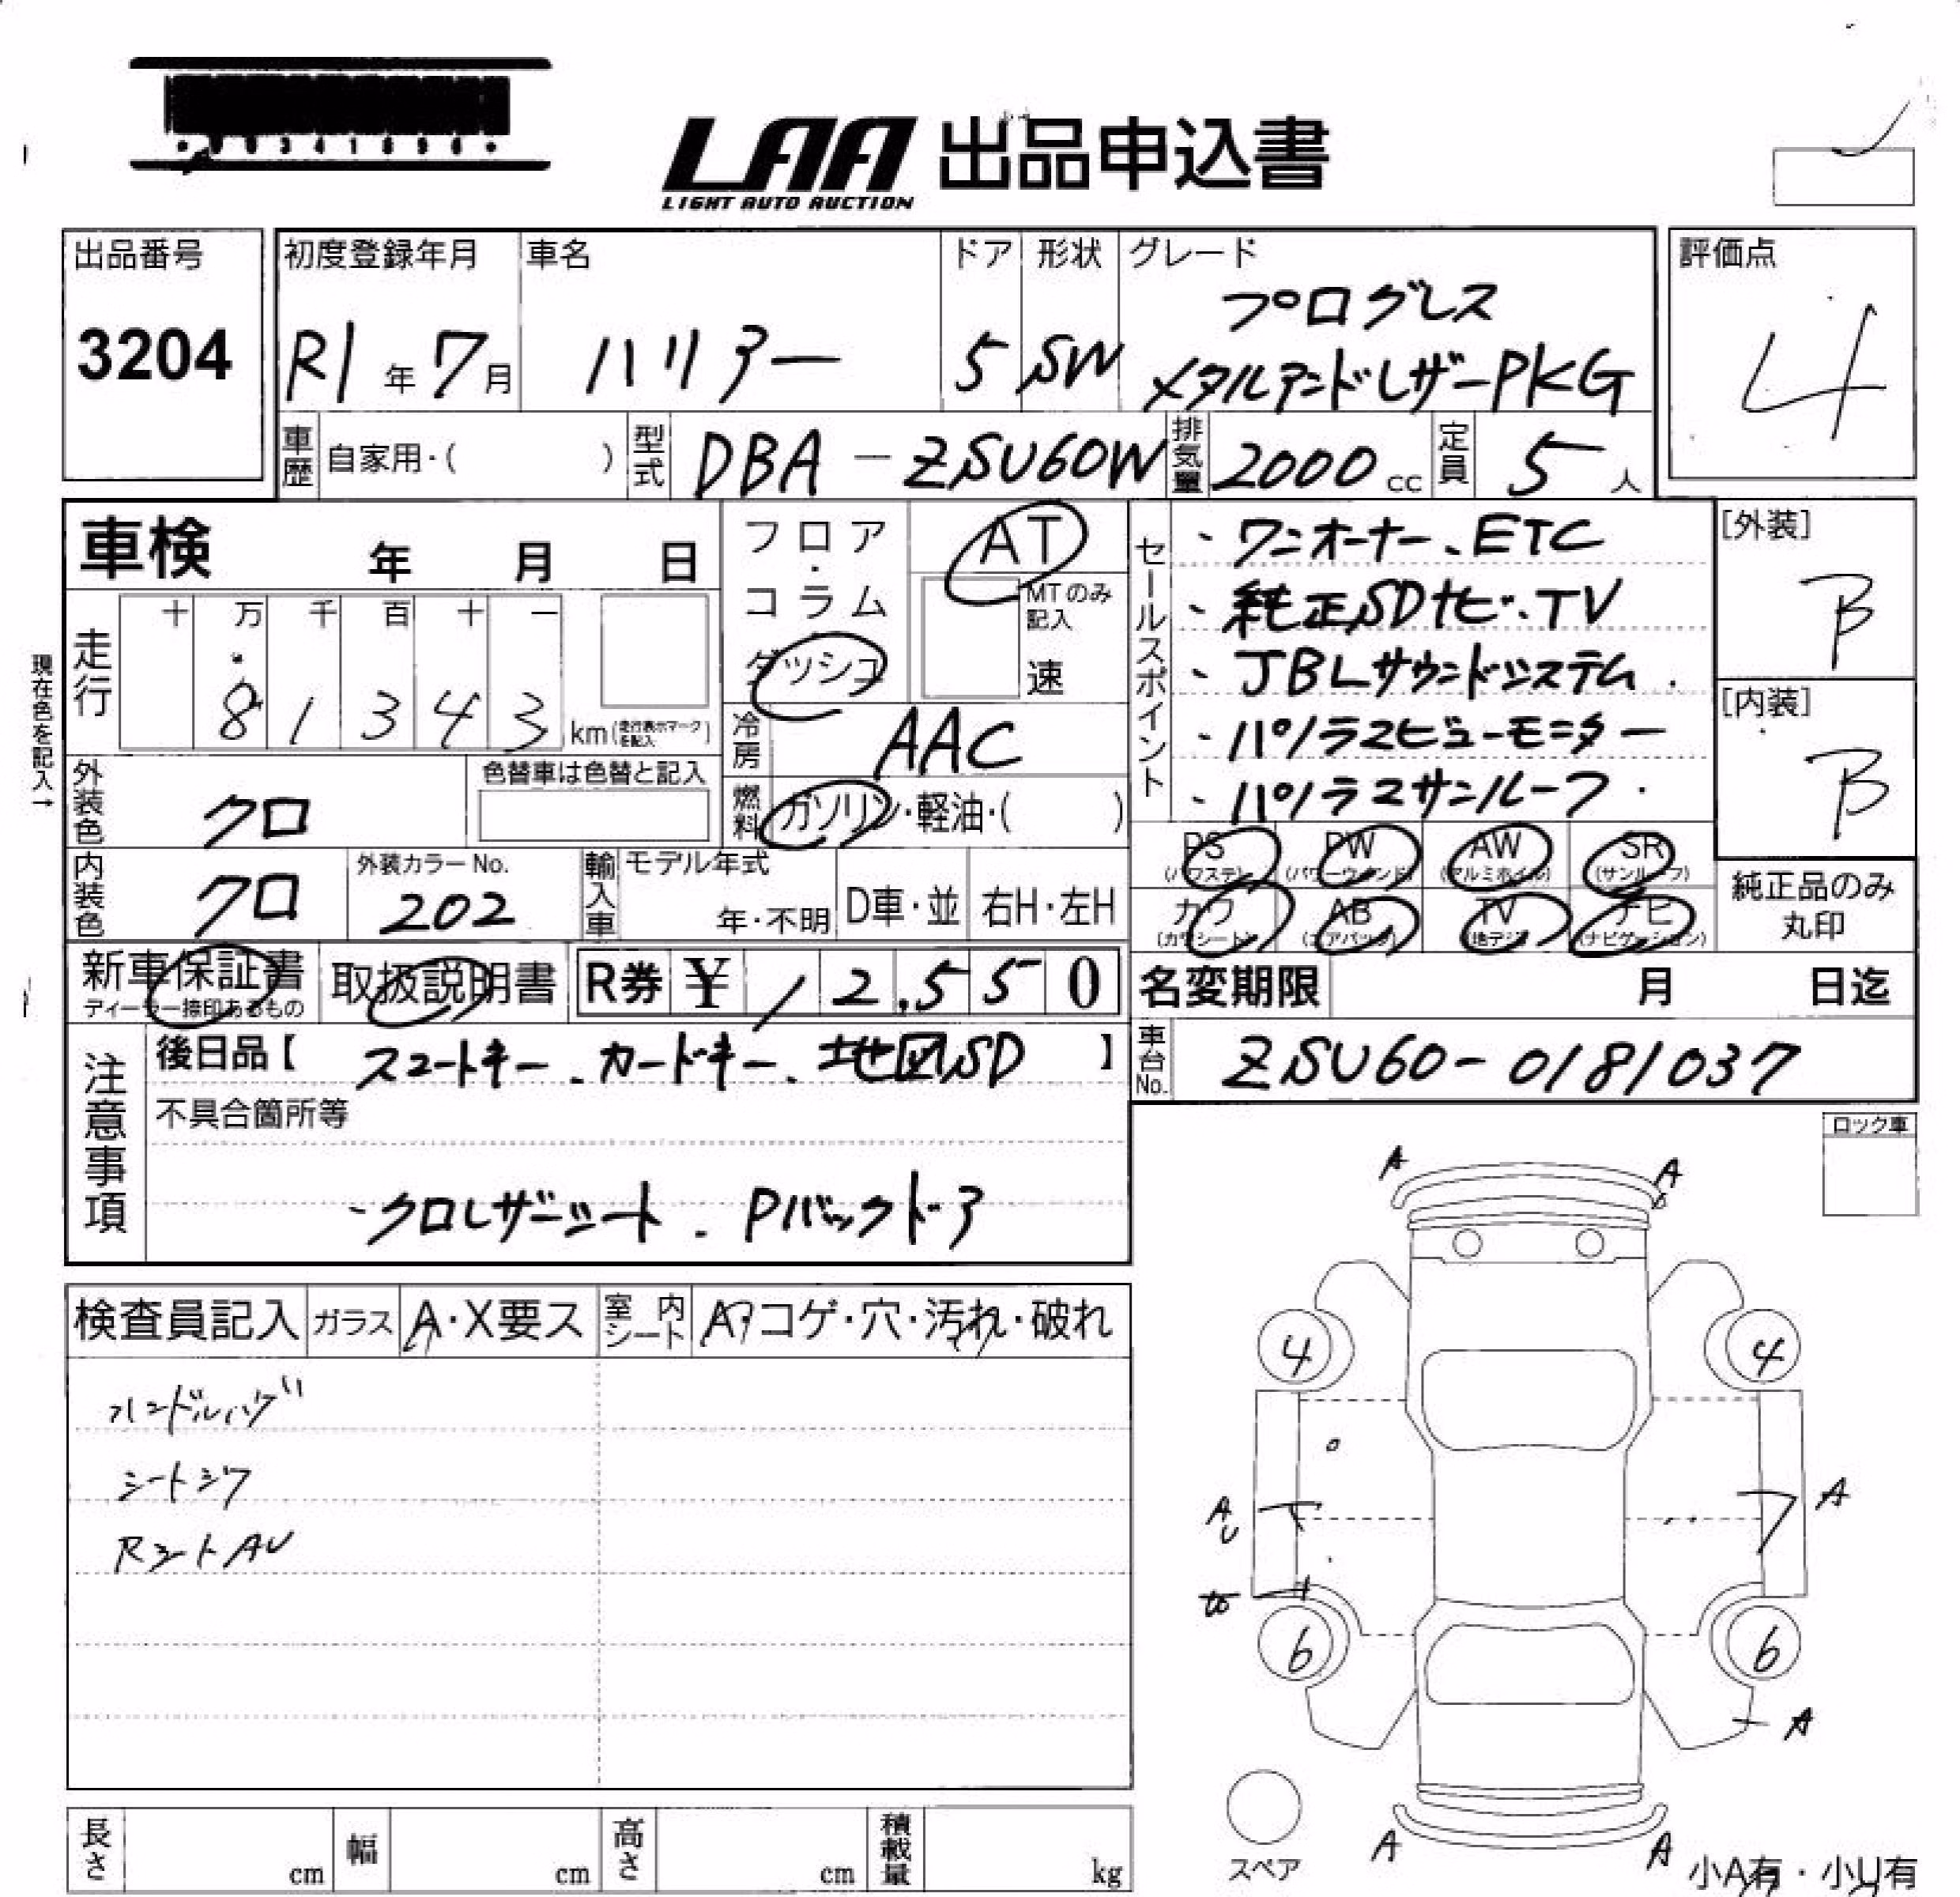 LAA 出品申込書
LIGHT AUTO AUCTION
出品番号
3204
初度登録年月
R1年7月
車名
ハリアー
ドア
5
形状
SW
グレード
プログレス
メタルアンドレザーPKG
評価点
4
車歴 自家用・( )
型式 DBA-ZSU60W
排気量 2000cc
定員 5人
車検 年 月 日
走行
十 万 千 百 十 一
8 1 3 4 3 km(走行表示マークを記入)
現在色を記入→
外装色 クロ
色替車は色替と記入
内装色 クロ
外装カラーNo.
202
フロア・コラム
ダッシュ
AT
MTのみ記入
速
冷房 AAC
燃料 ガソリン・軽油・( )
輸入車 モデル年式
年・不明
D車・並
右H・左H
セールスポイント
・ワンオーナー、ETC
・純正SDナビ・TV
・JBLサウンドシステム
・パノラマビューモニター
・パノラマサンルーフ
[外装]
B
[内装]
B
PS (パワステ) PW (パワーウインド) AW (アルミホイル) SR (サンルーフ)
カワ (カワシート) AB (エアバッグ) TV (地デジ) ナビ (ナビゲーション)
純正品のみ丸印
新車保証書
ディーラー捺印あるもの
取扱説明書
R券 ¥ 12,550
名変期限 月 日迄
車台No. ZSU60-0181037
注意事項
後日品【 スマートキー、カードキー、地図SD 】
不具合箇所等
・クロレザーシート、Pバックドア
ロック車
検査員記入 ガラス A・X要ス 室内シート A・コゲ・穴・汚れ・破れ
ハンドルハゲ
シートシワ
RシートAU
A A
4 4
A
U
A
6 6
A
A A
スペア
小A有・小U有
長さ cm 幅 cm 高さ cm 積載量 kg